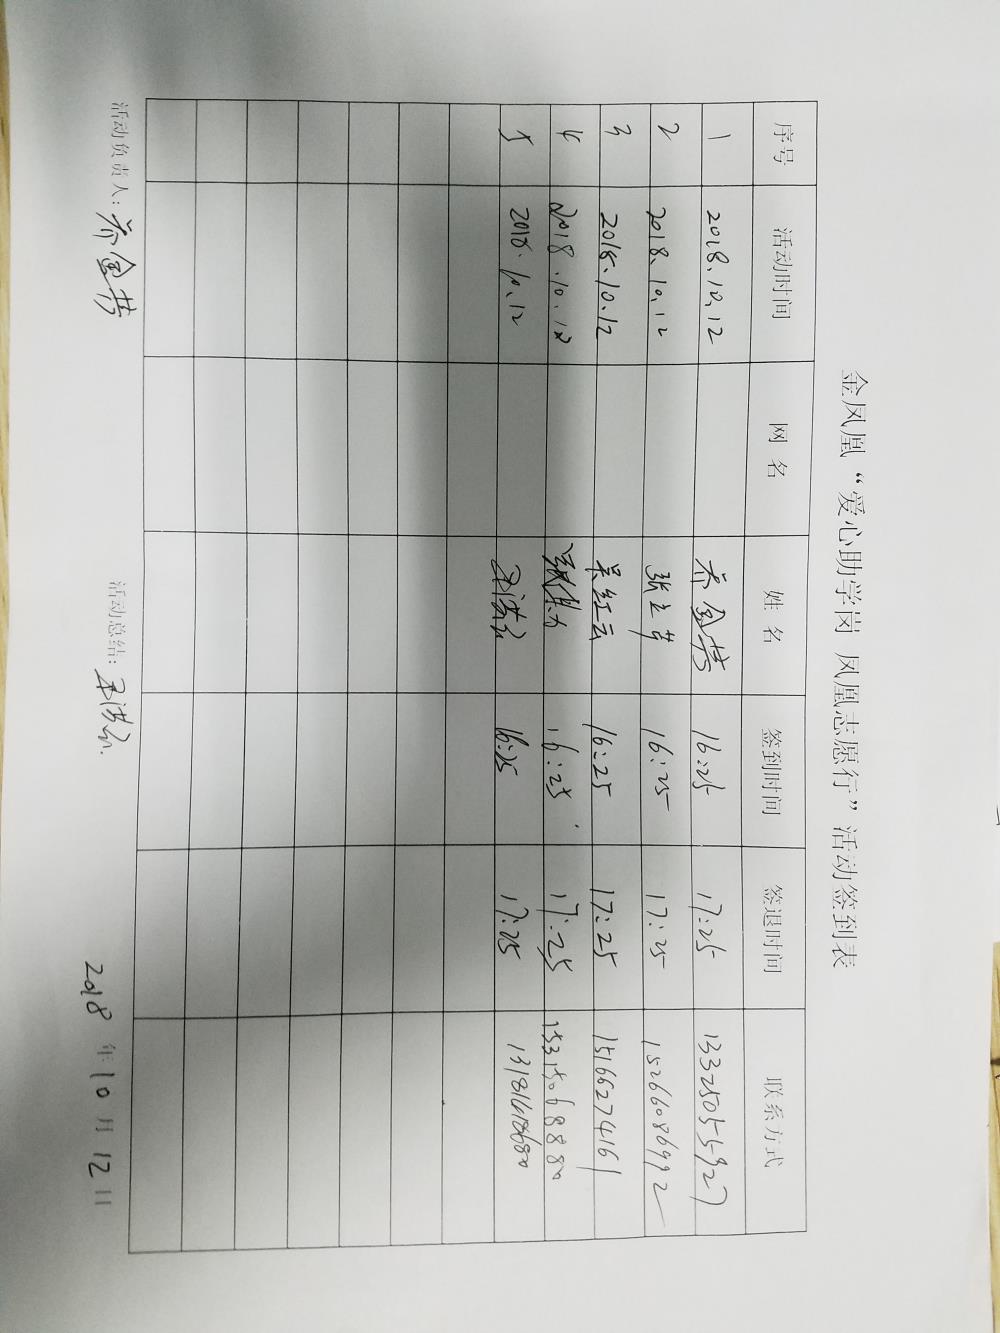 金凤凰“爱心助学岗 凤凰志愿行”活动签到表
序号 活动时间 网 名 姓 名 签到时间 签退时间 联系方式
1 2018.10.12 乔金梦 16:25 17:25 13325055927
2 2018.10.12 16:25 17:25 15266086992
3 2018.10.12 吴红云 16:25 17:25 15166274161
4 2018.10.12 16:25 17:25 15315068880
5 2018.10.12 16:25 17:25
活动负责人: 乔金梦 活动总结:
2018 年 10 月 12 日